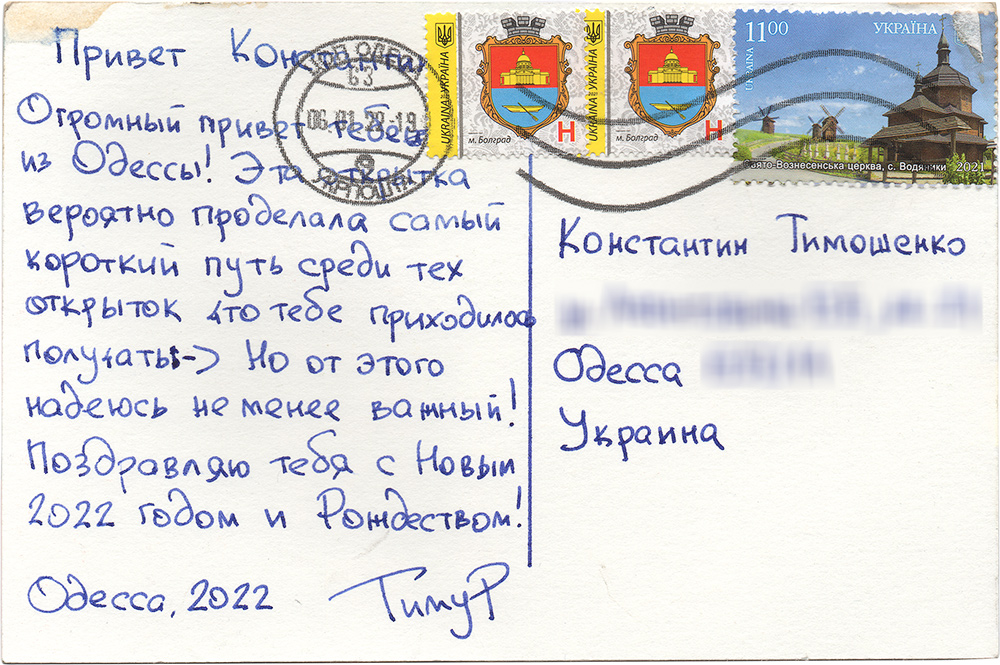 Привет Константин
Огромный привет тебе
из Одессы! Эта открытка
вероятно проделала самый
короткий путь среди тех
открыток что тебе приходилось
получать :-) Но от этого
надеюсь не менее важный!
Поздравляю тебя с Новым
2022 годом и Рождеством!
Одесса, 2022 Тимур
UKRAINA УКРАЇНА
м. Болград
Н
UKRAINA УКРАЇНА
м. Болград
Н
11.00
УКРАЇНА
UKRAINA
Свято-Вознесенська церква, с. Водяники 2021
63
УКРПОШТА
Константин Тимошенко
Одесса
Украина